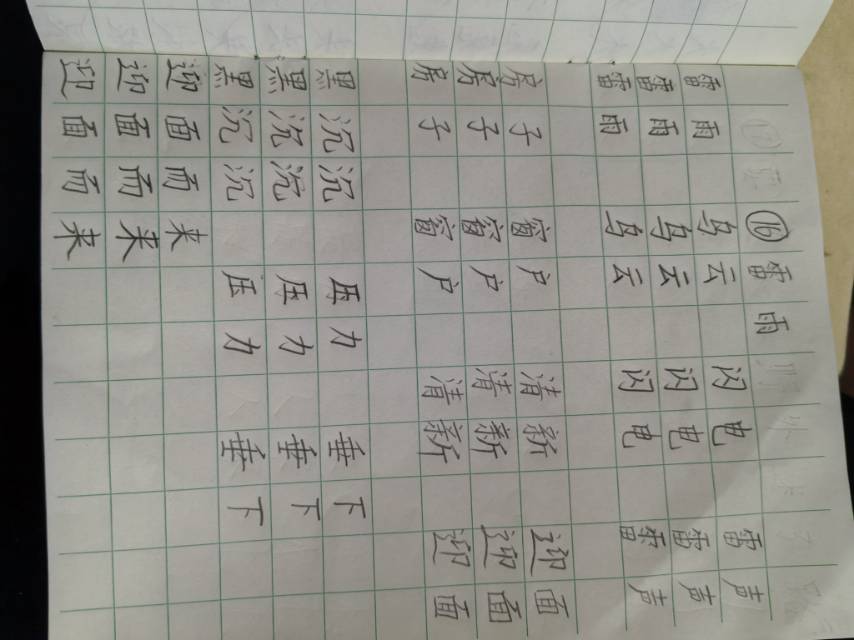 ⑯ 雷雨
雷雨 乌云 闪电 雷声
雷雨 乌云 闪电 雷声
雷雨 乌云 闪电 雷声
房子 窗户 清新 迎面
房子 窗户 清新 迎面
房子 窗户 清新 迎面
黑沉沉 压力 垂下
黑沉沉 压力 垂下
黑沉沉 压力 垂下
迎面而来
迎面而来
迎面而来